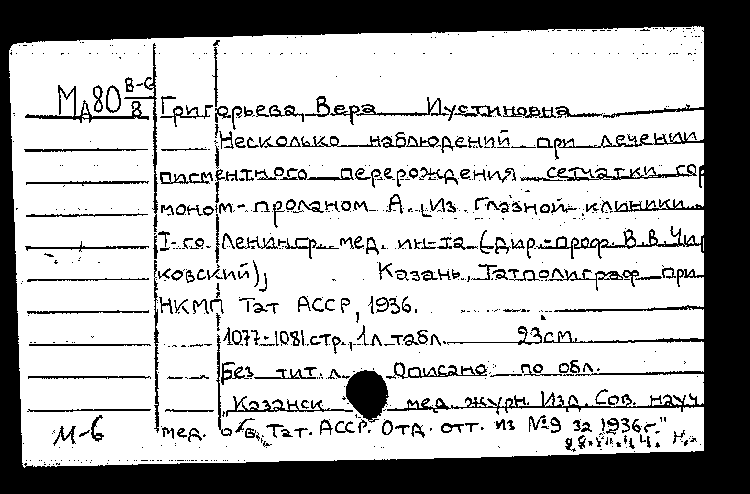 МА80 В-С/8 Григорьева, Вера Иустиновна
Несколько наблюдений при лечении
пигментного перерождения сетчатки гор
моном-проланом А. (Из Глазной клиники
I-го Ленингр. мед. ин-та (дир.-проф. В.В. Чир
ковский);  Казань, Татполиграф при
НКМП Тат АССР, 1936.
1077-1081 стр., 1 л. табл. 23 см.
Без тит. л. Описано по обл.
"Казанск мед. журн. Изд. Сов. науч.
М-6 мед. о/в, Тат. АССР. Отд. отт. из №9 за 1936г."